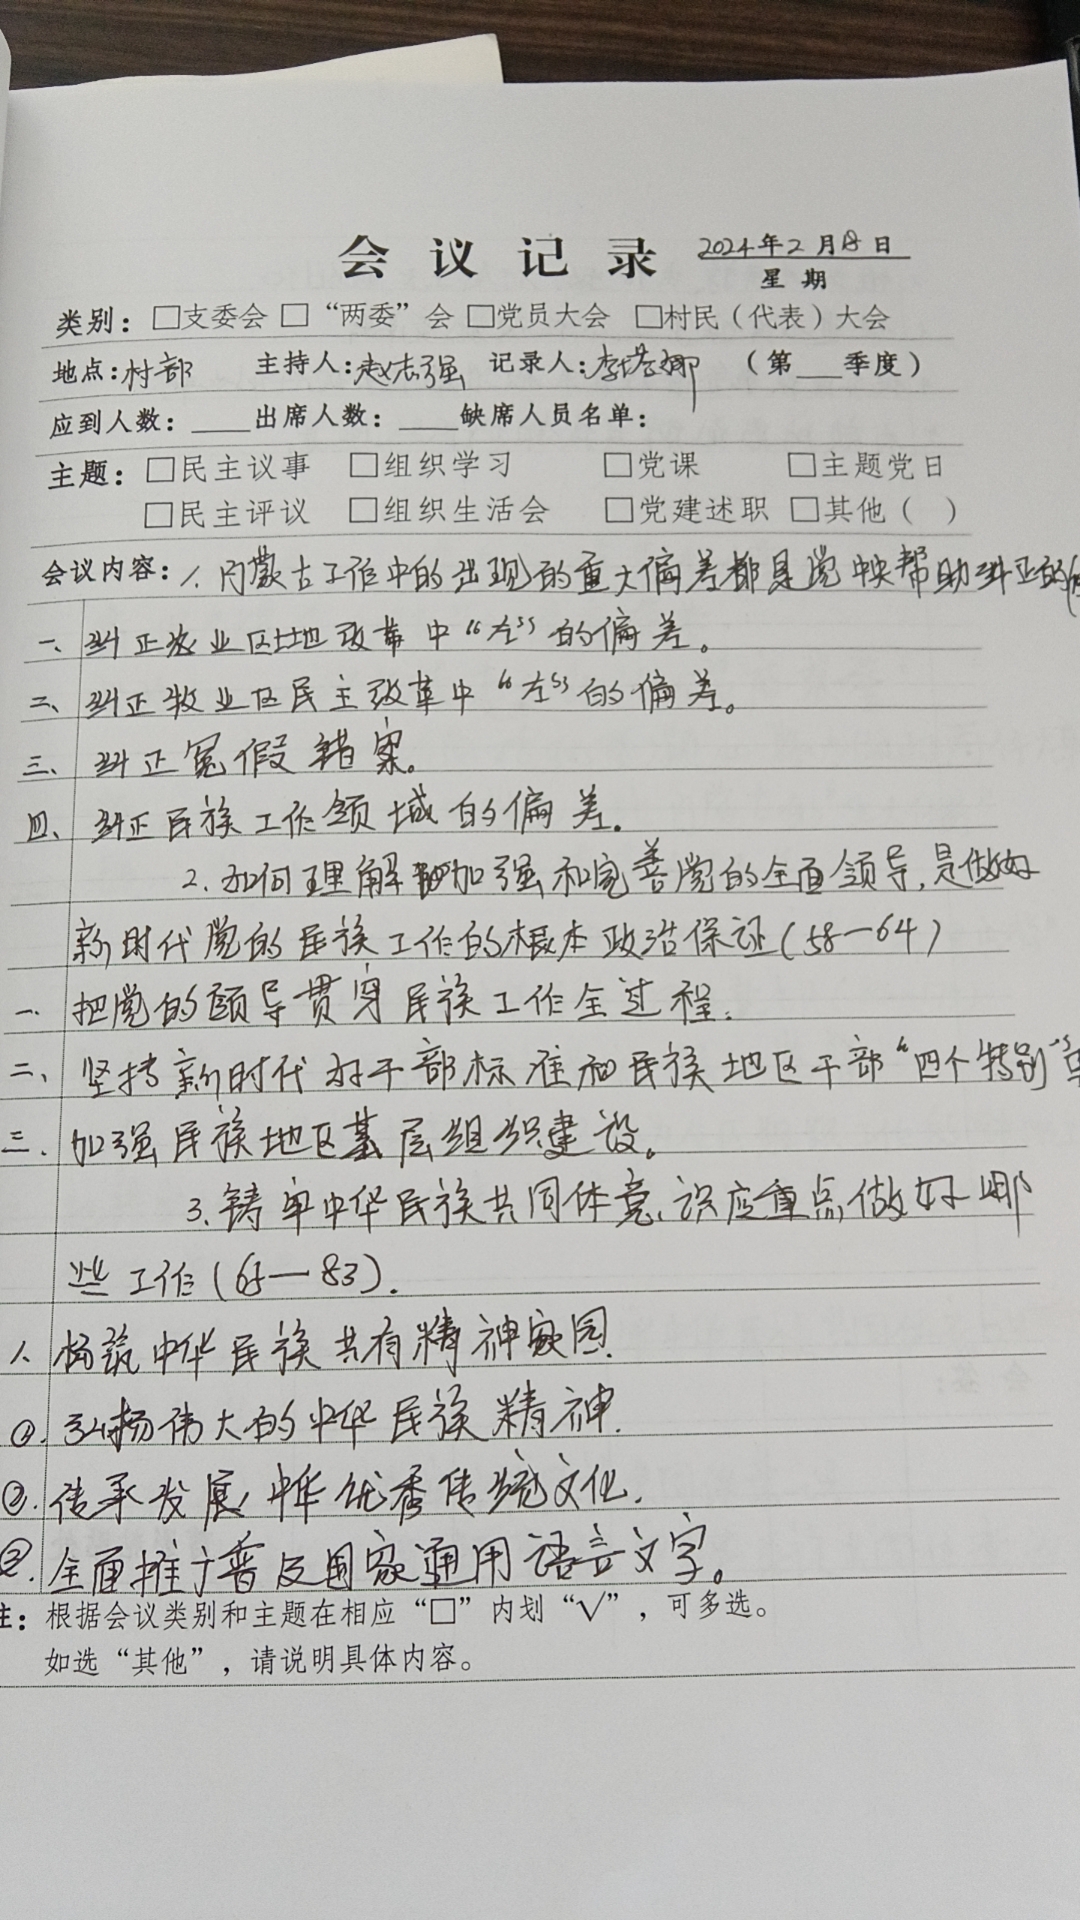 会议记录 2024年2月18日
星期
类别：□支委会 □“两委”会 □党员大会 □村民（代表）大会
地点：村部 主持人：赵志强 记录人：李塔娜 （第___季度）
应到人数：____出席人数：____缺席人员名单：
主题：□民主议事 □组织学习 □党课 □主题党日
□民主评议 □组织生活会 □党建述职 □其他（ ）
会议内容：1、内蒙古工作中的出现的重大偏差都是党中央帮助纠正的
一、纠正农业区土地改革中“左”的偏差。
二、纠正牧业区民主改革中“左”的偏差。
三、纠正冤假错案。
四、纠正民族工作领域的偏差.
2.如何理解加强和完善党的全面领导,是做好
新时代党的民族工作的根本政治保证(58—64)
一、把党的领导贯穿民族工作全过程.
二、坚持新时代好干部标准和民族地区干部“四个特别”
三.加强民族地区基层组织建设。
3.铸牢中华民族共同体意识应重点做好哪
些工作(65—83).
1、构筑中华民族共有精神家园.
①.弘扬伟大的中华民族精神.
②.传承发展中华优秀传统文化.
③.全面推广普及国家通用语言文字。
注：根据会议类别和主题在相应“□”内划“√”，可多选。
如选“其他”，请说明具体内容。